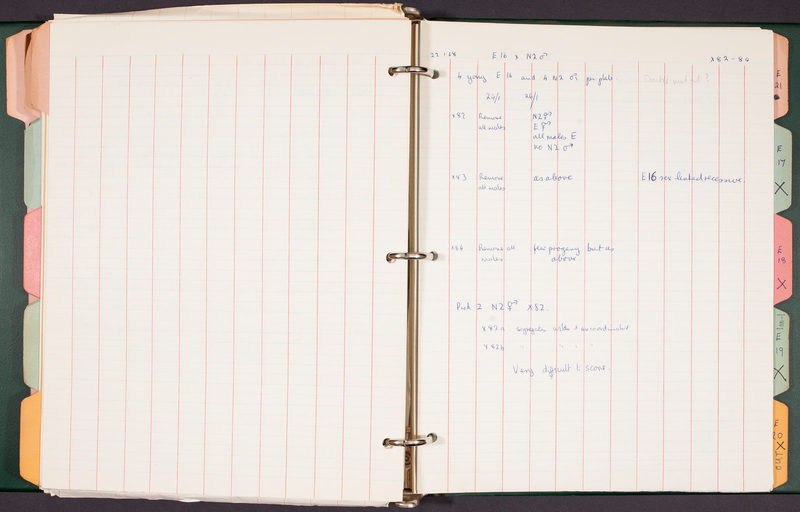 22.1.68 E16 x N2 ♂ X82-84
4 young E16 and 4 N2 ♂ per plate. Double mutant?
24/1 26/1
X82 Remove N2 ⚥
all males E ⚥
all males E
no N2 ♂
X83 Remove as above E16 sex linked recessive.
all males
X84 Remove all few progeny but as
males above
Pick 2 N2 ⚥ X82.
X82a segregates wilds +
X82b " " "
Very difficult to score.
E
21
E
17
X
E
18
X
E
19
X
E
20
X
OUT